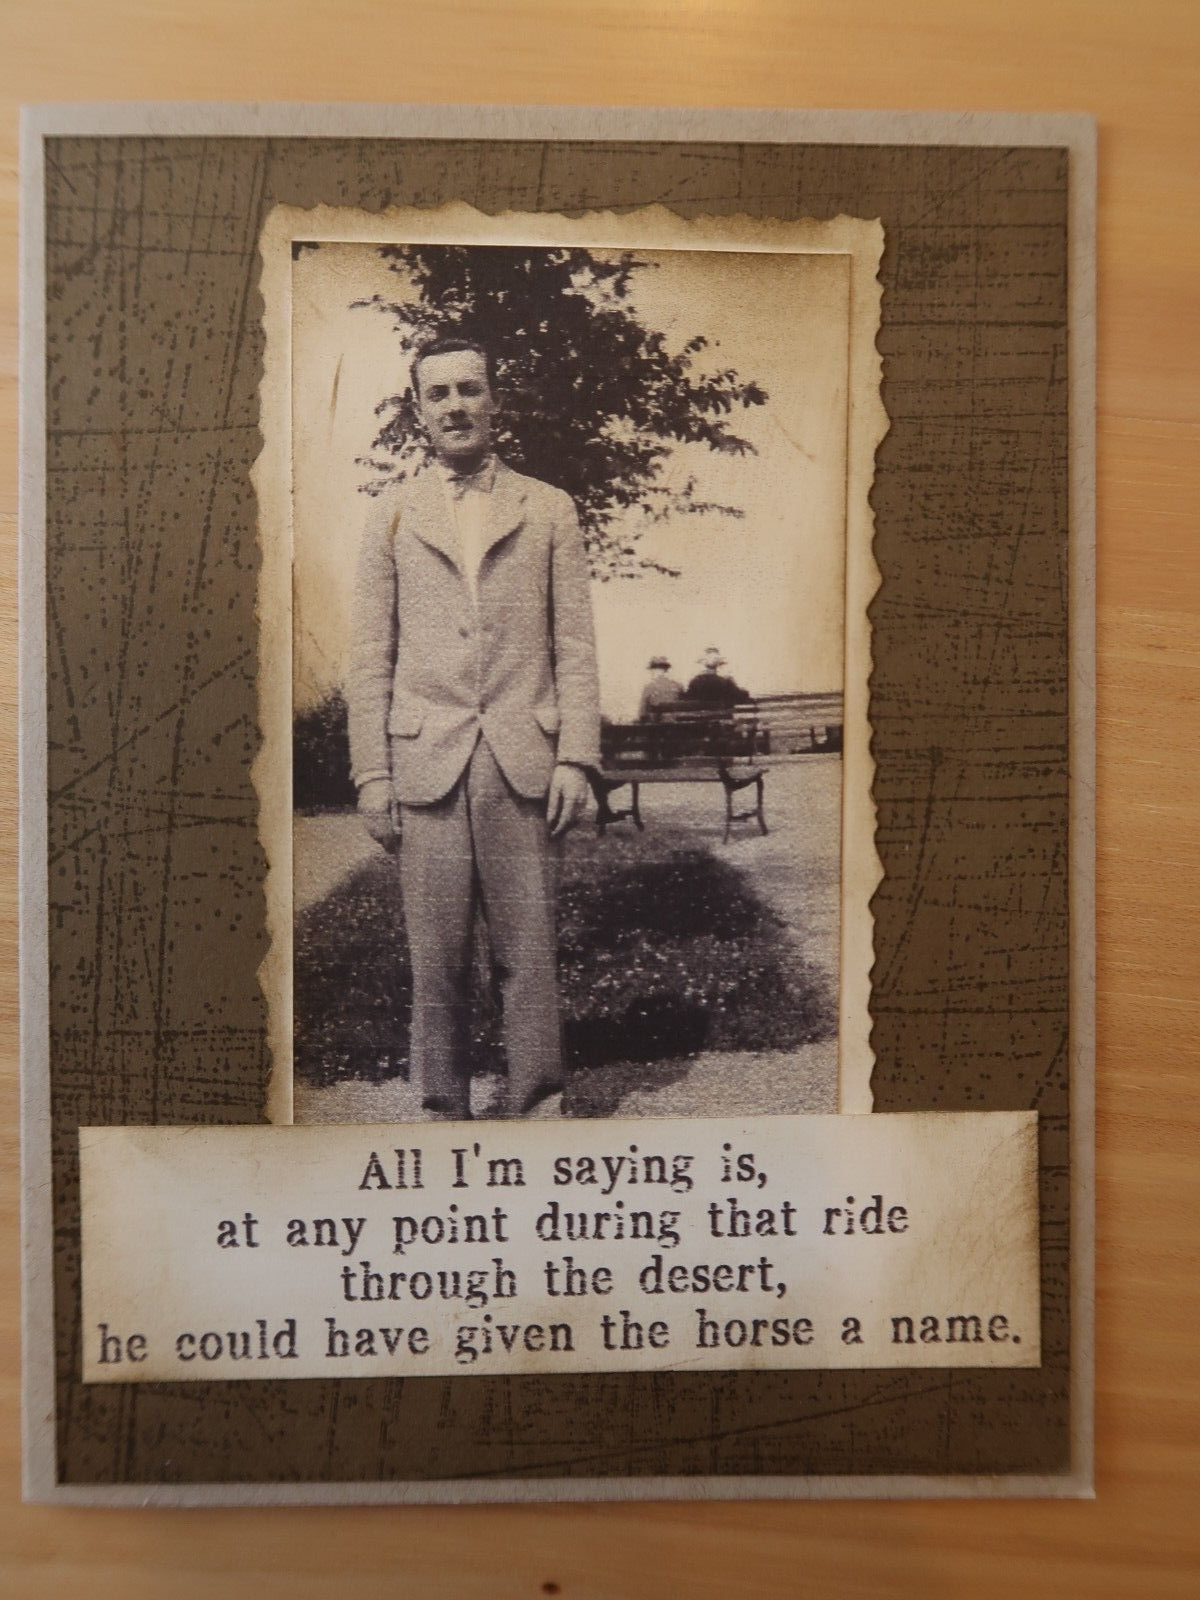 All I'm saying is,
at any point during that ride
through the desert,
he could have given the horse a name.